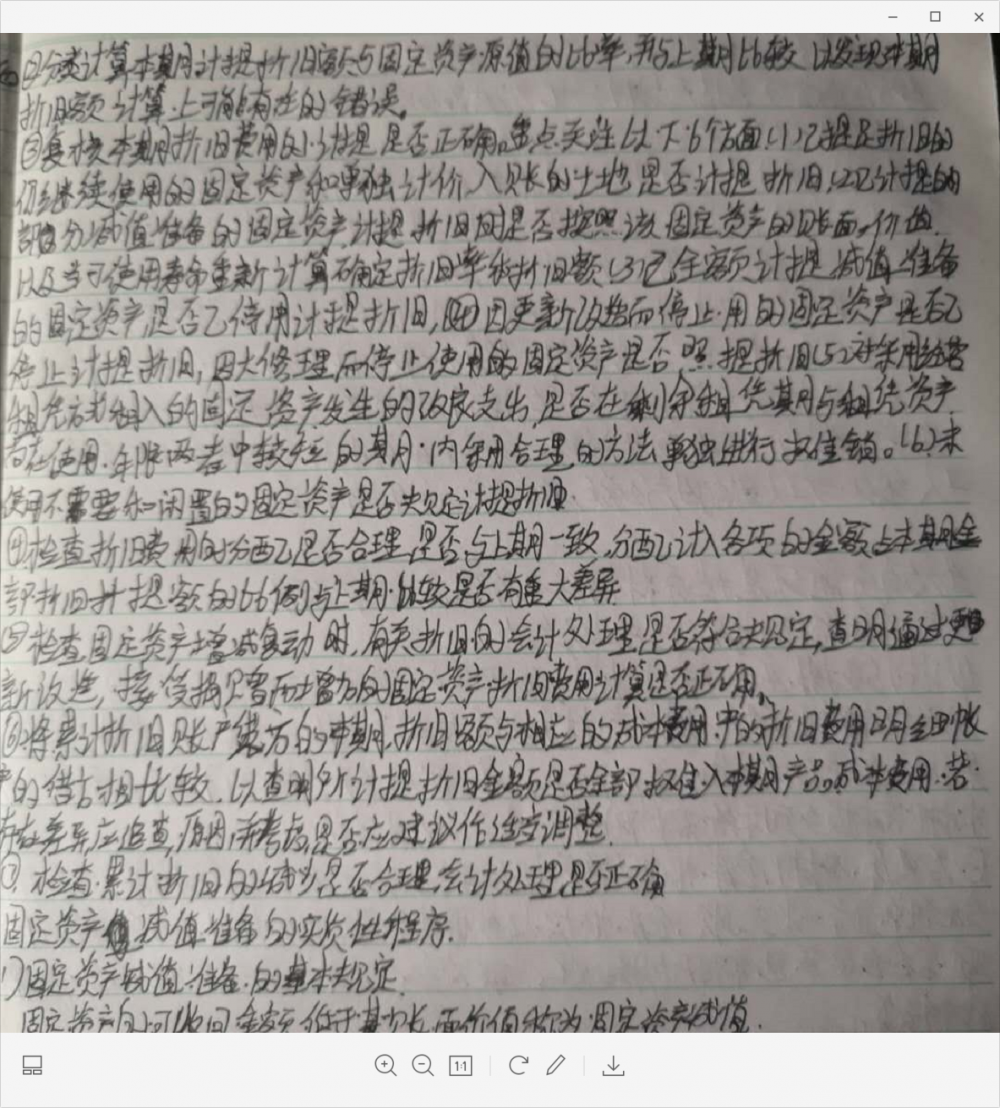 ②分类计算本期计提折旧额与固定资产原值的比率,并与上期比较 以发现本期
折旧额计算上可能存在的错误。
③复核本期折旧费用的计提是否正确。重点关注以下6个方面(1)已提足折旧的
仍继续使用的固定资产和单独计价入账的土地是否计提折旧(2)已计提的
部分减值准备的固定资产计提折旧时是否按照该固定资产的账面价值
以及尚可使用寿命重新计算确定折旧率和折旧额(3)已全额计提减值准备
的固定资产是否已停用计提折旧,因更新改造而停止用的固定资产是否已
停止计提折旧,因大修理而停止使用的固定资产是否照提折旧(5)对采用经营
租凭方式租入的固定资产发生的改良支出,是否在剩余租凭期与租凭资产
尚在使用年限两者中较短的期内采用合理的方法单独进行摊销。(6)未
使用不需要和闲置的固定资产是否按规定计提折旧
④检查折旧费用的分配是否合理,是否与上期一致,分配计入各项的金额占本期全
部折旧计提额的比例与上期比较是否有重大差异
⑤检查固定资产增减变动时,有关折旧的会计处理是否符合规定,查明通过更
新改造,接受捐赠而增加的固定资产折旧费用计算是否正确。
⑥将累计折旧账户贷方的本期折旧额与相应的成本费用中的折旧费用明细帐
户的借方相比较,以查明所计提折旧金额是否全部摊入本期产品成本费用.若
存在差异应追查原因,并考虑是否应建议作适当调整.
⑦.检查累计折旧的减少是否合理,会计处理是否正确
固定资产减值准备的实质性程序.
1)固定资产减值准备的基本规定.
固定资产的可收回金额低于其账面价值称为固定资产减值.